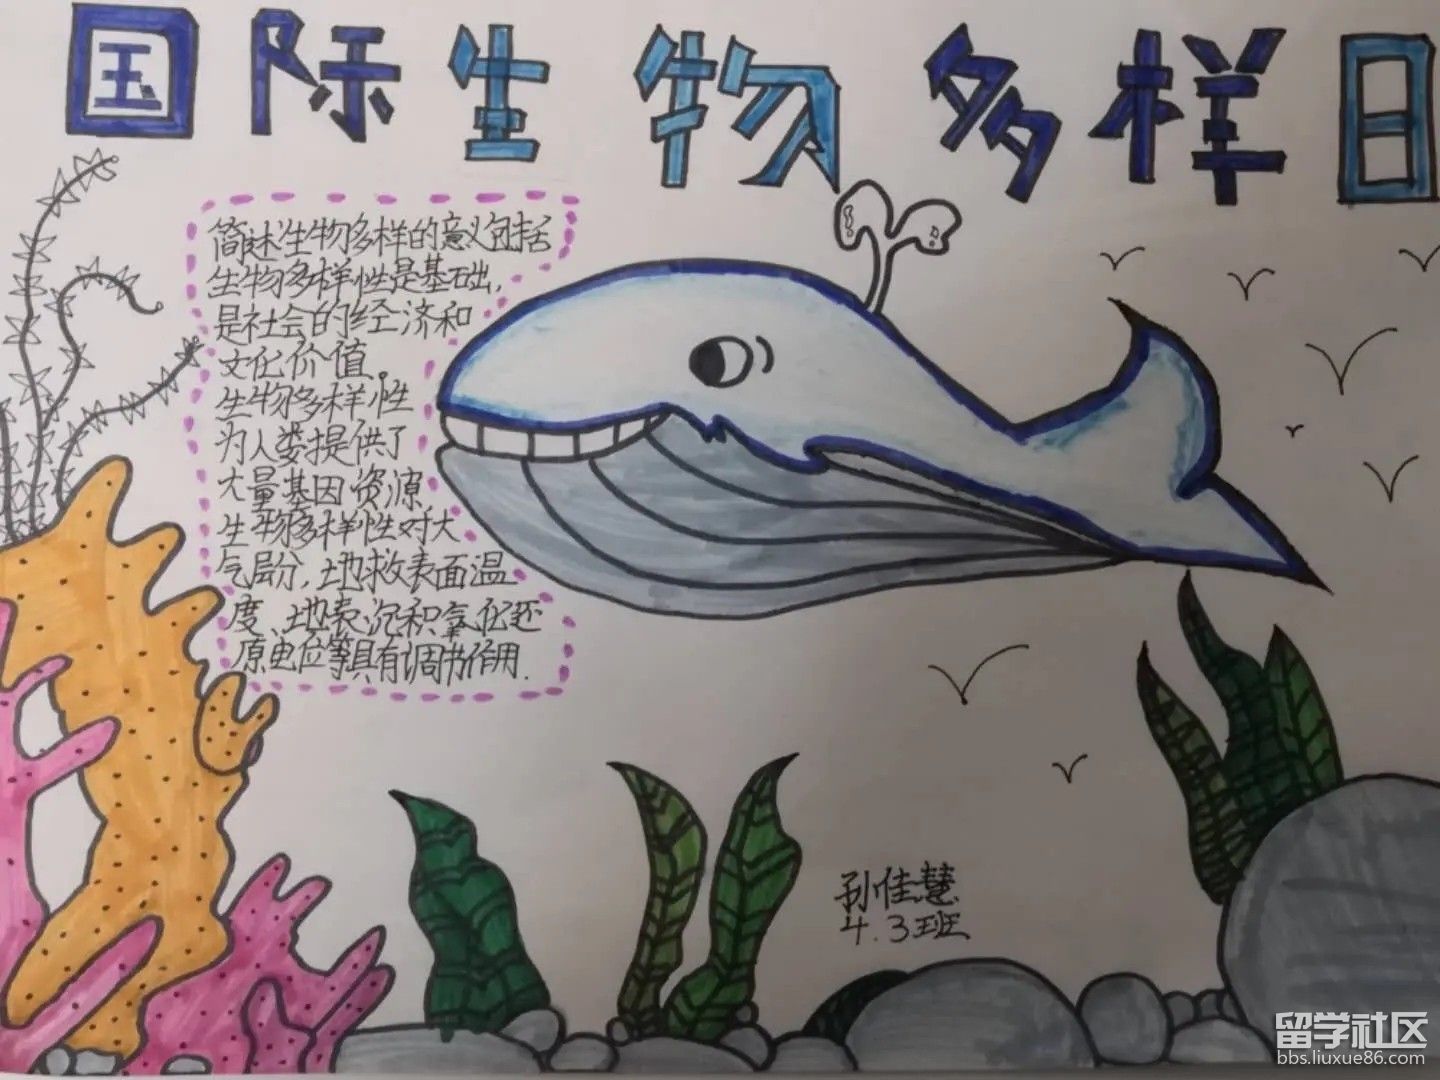 国际生物多样日
简述生物多样的意义包括
生物多样性是基础,
是社会的经济和
文化价值。
生物多样性
为人类提供了
大量基因资源,
生物多样性对大
气层分,地球表面温
度、地表沉积氧化还
原电位等具有调节作用.
孙佳慧
4.3班
留学社区
bbs.liuxue86.com